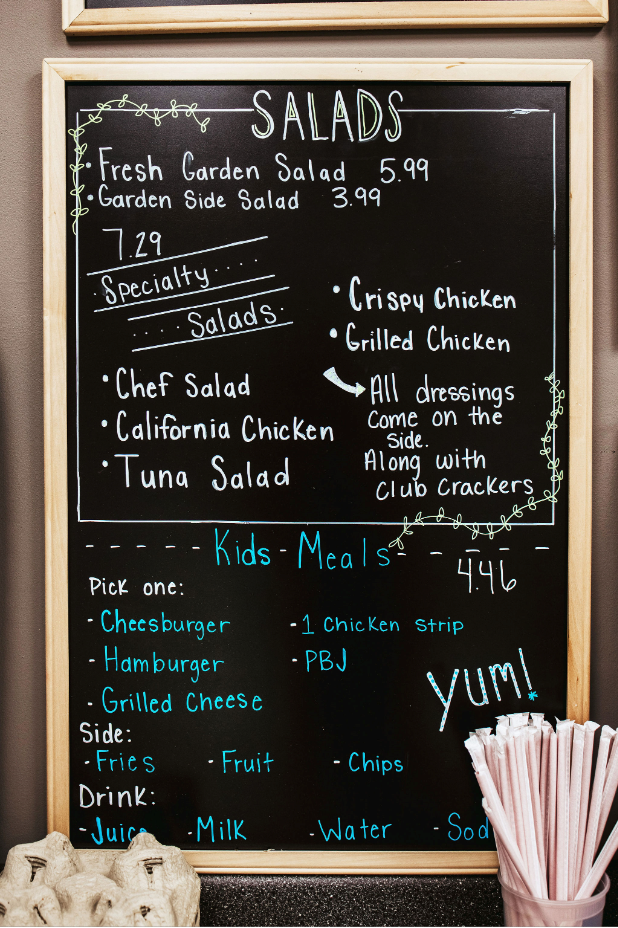 SALADS
• Fresh Garden Salad 5.99
• Garden Side Salad 3.99
7.29
· Specialty ....
.... Salads.
• Crispy Chicken
• Grilled Chicken
• Chef Salad
• California Chicken
• Tuna Salad
All dressings
Come on the
side.
Along with
Club Crackers
- - - - - Kids - Meals - - - - -
4.46
Pick one:
- Cheesburger
- Hamburger
- Grilled Cheese
- 1 Chicken strip
- PBJ
Yum!
Side:
- Fries - Fruit - Chips
Drink:
- Juice - Milk - Water - Sod